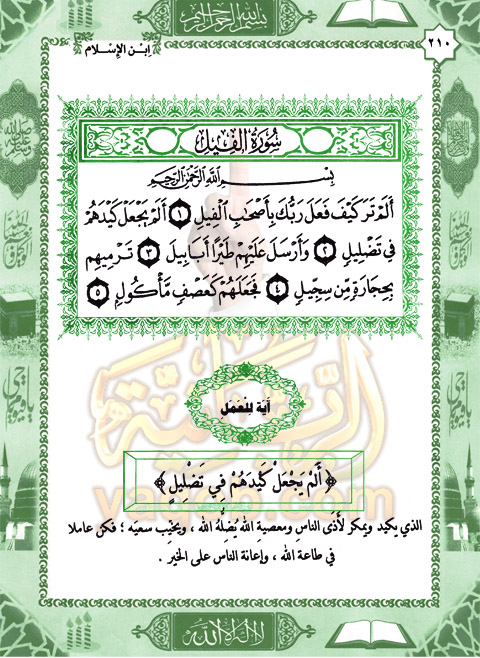 بسم الله الرحمن الرحيم
٢١٠
ابْن الإسْلام
سُورَةُ الْفِيلِ
بِسْمِ اللَّهِ الرَّحْمَٰنِ الرَّحِيمِ
أَلَمْ تَرَ كَيْفَ فَعَلَ رَبُّكَ بِأَصْحَٰبِ الْفِيلِ ١ أَلَمْ يَجْعَلْ كَيْدَهُمْ
فِي تَضْلِيلٍ ٢ وَأَرْسَلَ عَلَيْهِمْ طَيْرًا أَبَابِيلَ ٣ تَرْمِيهِم
بِحِجَارَةٍ مِّن سِجِّيلٍ ٤ فَجَعَلَهُمْ كَعَصْفٍ مَّأْكُولٍ ٥
آيَة لِلْعَمَلِ
﴿ أَلَمْ يَجْعَلْ كَيْدَهُمْ فِي تَضْلِيلٍ ﴾
الذي يكيد ويمكر لأَذَى الناسِ ومعصيةِ الله يُضِلُّهُ الله ، ويخيِّب سعيَه ؛ فكن عاملا
في طاعة الله ، وإعانة الناس على الخير .
لا إله إلا الله